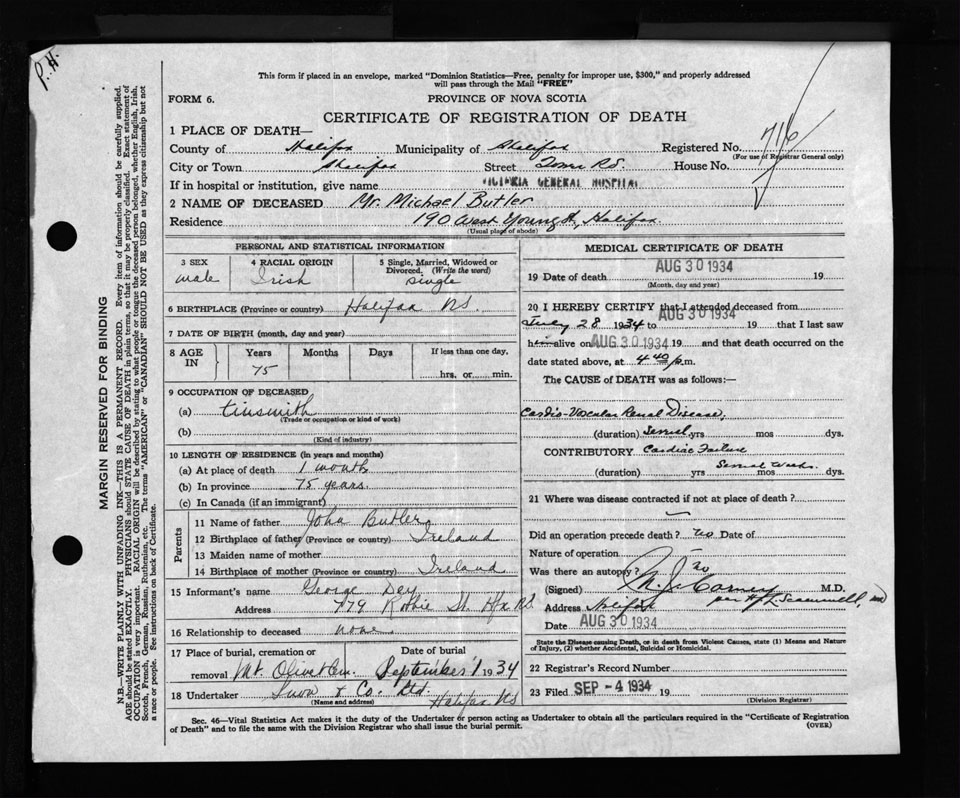 P.H.
This form if placed in an envelope, marked "Dominion Statistics—Free, penalty for improper use, $300," and properly addressed
will pass through the Mail "FREE"
FORM 6.
PROVINCE OF NOVA SCOTIA
CERTIFICATE OF REGISTRATION OF DEATH
1 PLACE OF DEATH—
Registered No. 716
(For use of Registrar General only)
County of Halifax Municipality of Halifax
City or Town Halifax Street House No.
If in hospital or institution, give name VICTORIA GENERAL HOSPITAL
2 NAME OF DECEASED Mr. Michael Butler
Residence 190 West Young St, Halifax
(Usual place of abode)
PERSONAL AND STATISTICAL INFORMATION
3 SEX male
4 RACIAL ORIGIN Irish
5 Single, Married, Widowed or Divorced. (Write the word) single
6 BIRTHPLACE (Province or country) Halifax NS.
7 DATE OF BIRTH (month, day and year)
8 AGE IN Years Months Days If less than one day,
75 hrs. or min.
9 OCCUPATION OF DECEASED
(a) tinsmith
(Trade or occupation or kind of work)
(b)
(Kind of industry)
10 LENGTH OF RESIDENCE (in years and months)
(a) At place of death 1 month
(b) In province 75 years.
(c) In Canada (if an immigrant)
Parents
11 Name of father John Butler
12 Birthplace of father (Province or country) Ireland
13 Maiden name of mother
14 Birthplace of mother (Province or country) Ireland
15 Informant's name George Dey
Address 779 Robie St. Hfx NS
16 Relationship to deceased none
17 Place of burial, cremation or removal Mt. Olivet Cem.
Date of burial September 1 1934
18 Undertaker Snow & Co. Ltd. Halifax NS
(Name and address)
MEDICAL CERTIFICATE OF DEATH
19 Date of death AUG 30 1934 19
(Month, day and year)
20 I HEREBY CERTIFY that I attended deceased from
July 28 1934 to AUG 30 1934 19 that I last saw
him alive on AUG 30 1934 19 and that death occurred on the
date stated above, at 4 40 p.m.
The CAUSE of DEATH was as follows:—
Cardio-Vascular Renal Disease,
(duration) Several yrs mos dys.
CONTRIBUTORY Cardiac Failure
(duration) yrs Several Weeks. mos dys.
21 Where was disease contracted if not at place of death?
Did an operation precede death? no Date of
Nature of operation
Was there an autopsy? no
(Signed) M.D.
Address Halifax
Date AUG 30 1934
State the Disease causing Death, or in death from Violent Causes, state (1) Means and Nature
of Injury, (2) whether Accidental, Suicidal or Homicidal.
22 Registrar's Record Number
23 Filed SEP - 4 1934 19
(Division Registrar)
Sec. 46—Vital Statistics Act makes it the duty of the Undertaker or person acting as Undertaker to obtain all the particulars required in the "Certificate of Registration
of Death" and to file the same with the Division Registrar who shall issue the burial permit. (OVER)
MARGIN RESERVED FOR BINDING
N.B.—WRITE PLAINLY WITH UNFADING INK—THIS IS A PERMANENT RECORD. Every item of information should be carefully supplied.
AGE should be stated EXACTLY. PHYSICIANS should STATE CAUSE OF DEATH in plain terms, so that it may be properly classified. Exact statement of
OCCUPATION is very important. RACIAL ORIGIN will be described by stating to what people or tongue the deceased person belonged, whether English, Irish,
Scotch, French, German, Russian, Ruthenian, etc. The terms "AMERICAN" or "CANADIAN" SHOULD NOT BE USED as they express citizenship but not
a race or people. See instructions on back of Certificate.